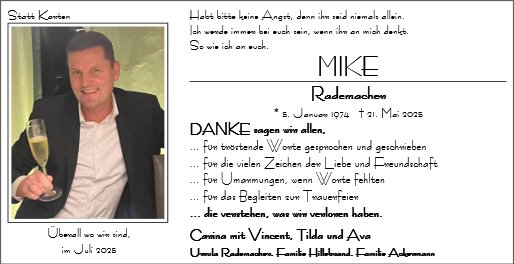 Statt Karten
Habt bitte keine Angst, denn ihr seid niemals allein.
Ich werde immer bei euch sein, wenn ihr an mich denkt.
So wie ich an euch.
MIKE
Rademacher
* 5. Januar 1974 † 21. Mai 2025
DANKE sagen wir allen,
... für tröstende Worte gesprochen und geschrieben
... für die vielen Zeichen der Liebe und Freundschaft
... für Umarmungen, wenn Worte fehlten
... für das Begleiten zur Trauerfeier
... die verstehen, was wir verloren haben.
Carina mit Vincent, Tilda und Ava
Ursula Rademacher, Familie Hillebrand, Familie Ackermann
Überall wo wir sind,
im Juli 2025